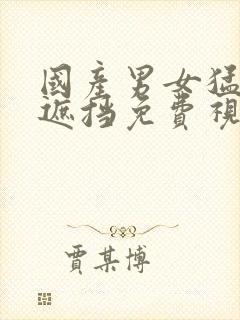 國產男女猛
遮挡免費視
賈某博